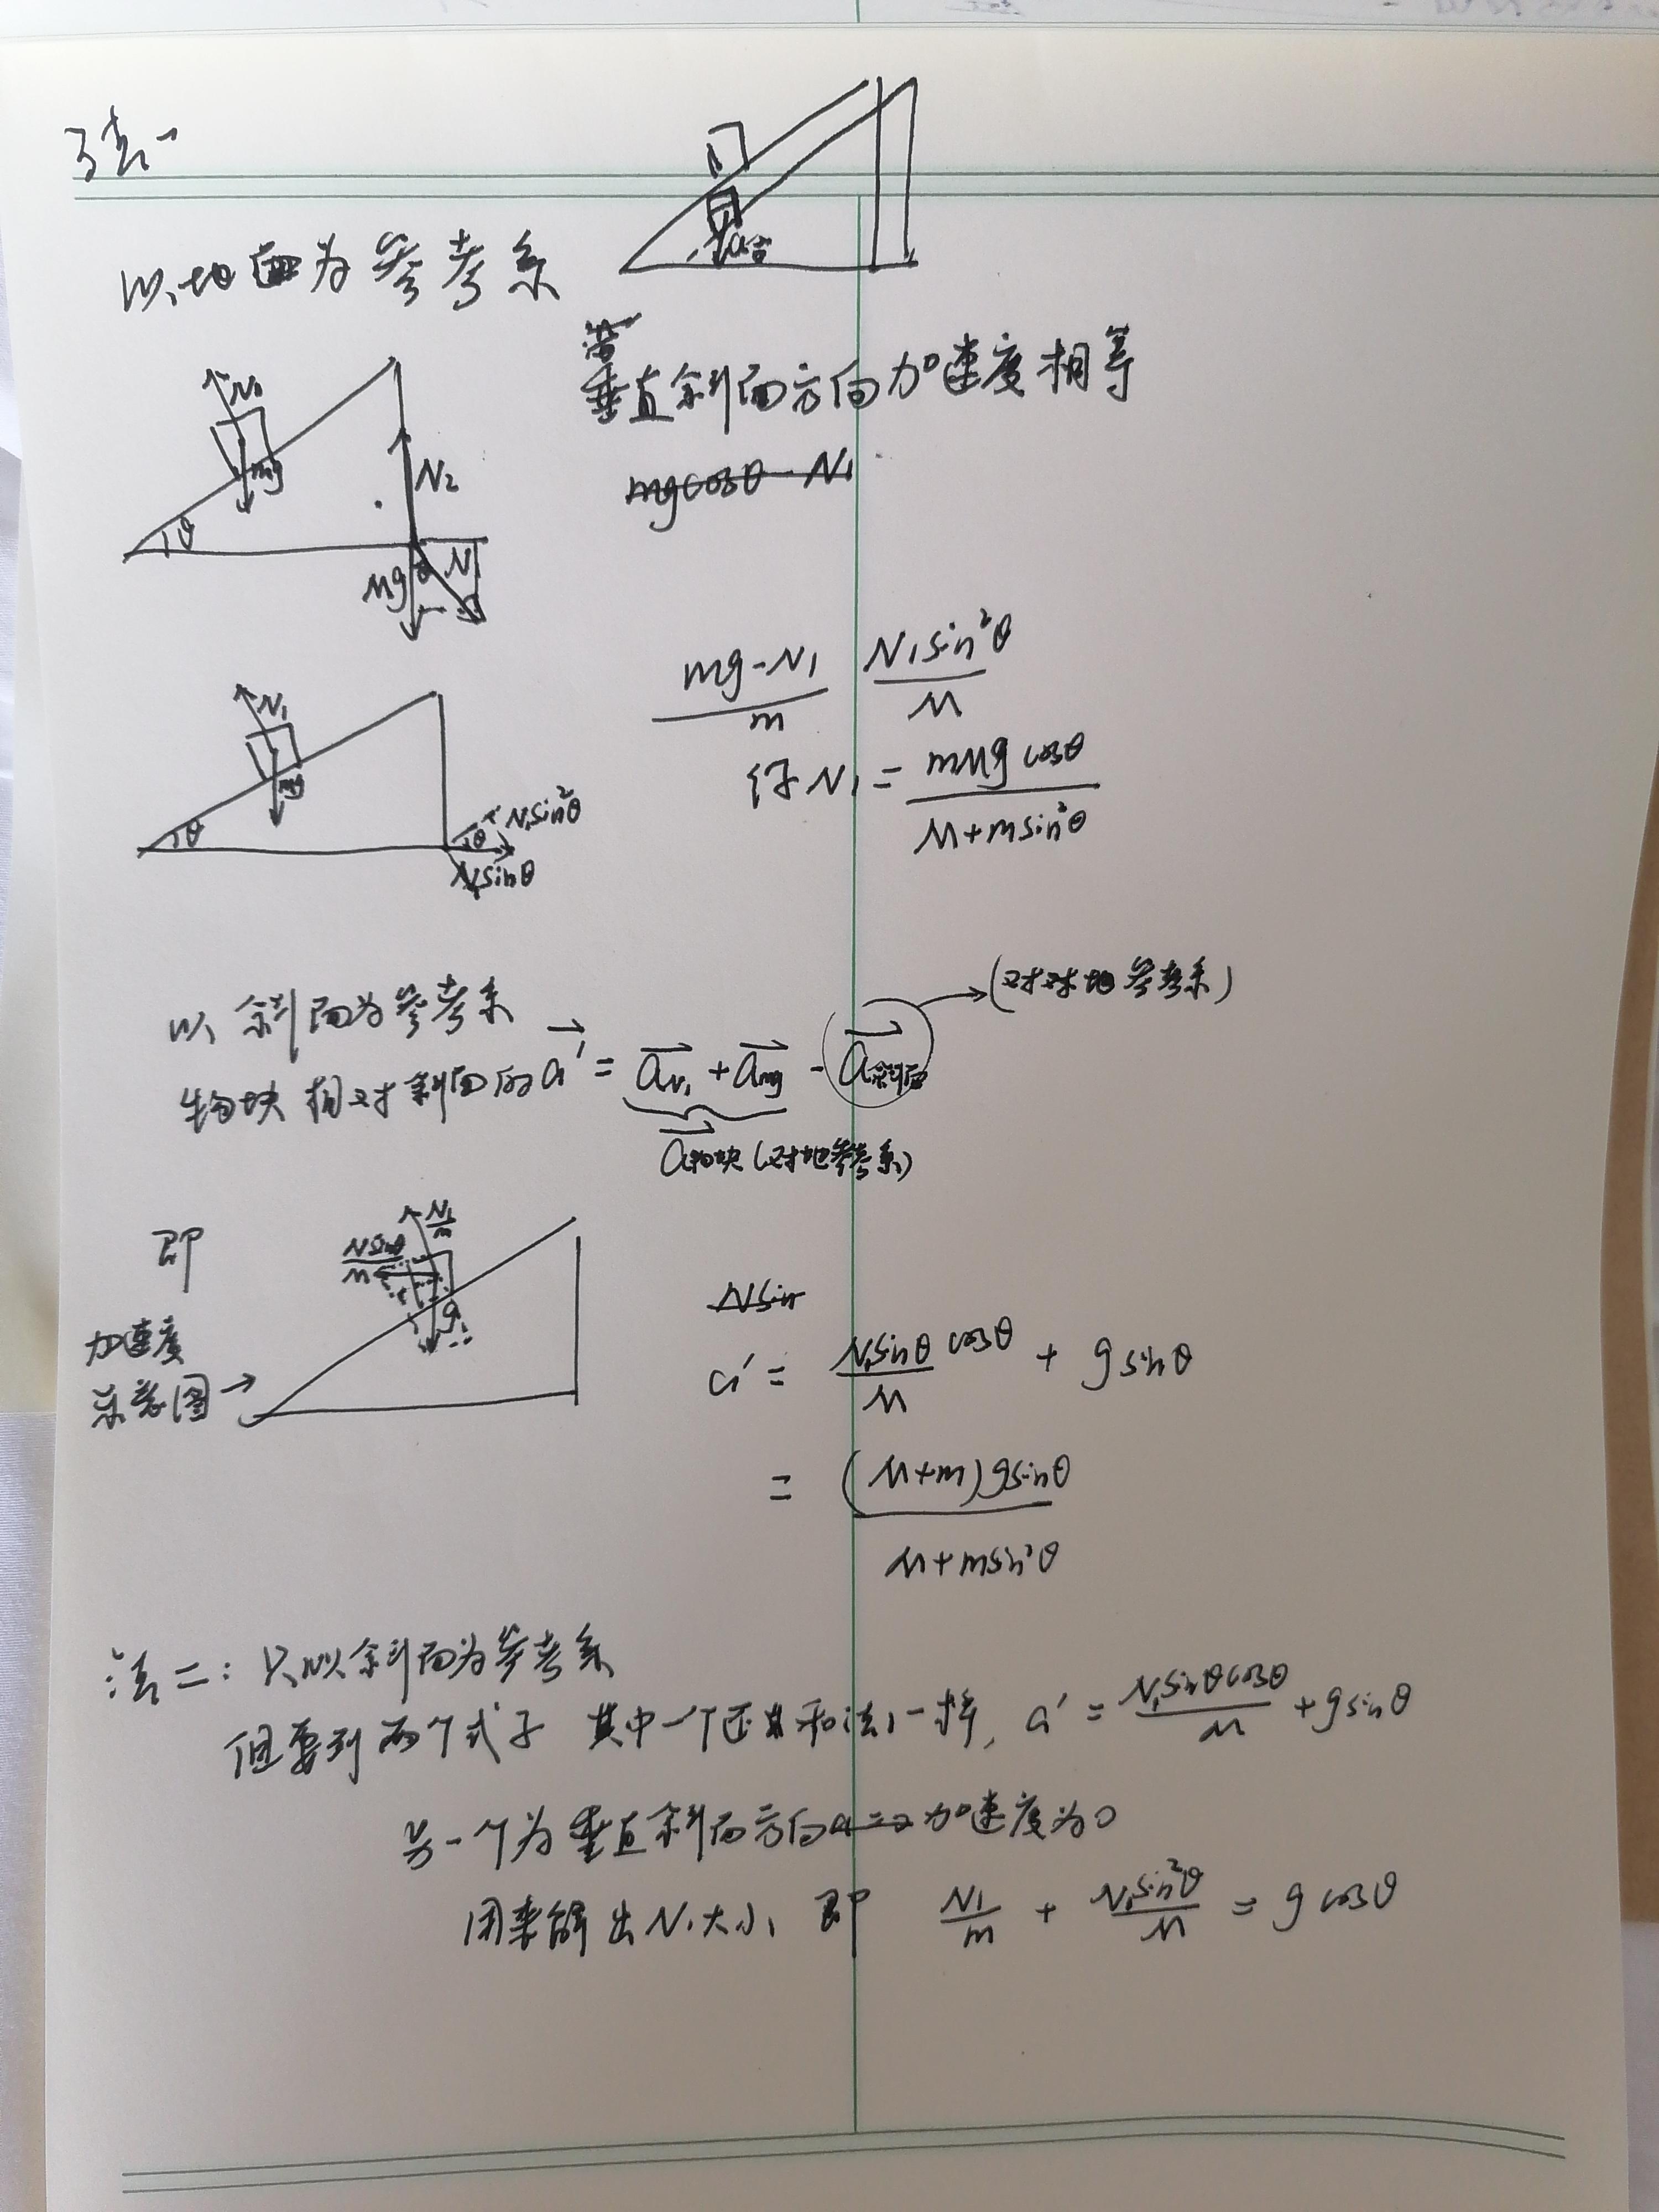 法一
以地面为参考系
a合
沿
垂直斜面方向加速度相等
mgcosθ - N₁
N₁
mg
θ
N₂
Mg
θ
N₁
mg-N₁/m N₁sin²θ/M
得 N₁ = mMg cosθ/M+msin²θ
N₁
mg
θ
N₁sin²θ
θ
N₁sinθ
以斜面为参考系
(对对地参考系)
物块相对斜面的a' = a_N₁ + a_mg - a_斜面
a物块(对地参考系)
即
加速度
示意图→
N₁/m
N₁sinθ/M
g
Nsin
a' = N₁sinθ cosθ/M + g sinθ
= (M+m)gsinθ/M+msin²θ
法二: 只以斜面为参考系
但要列两个式子 其中一个还是和法1一样, a' = N₁sinθcosθ/M + g sinθ
另一个为垂直斜面方向a=0加速度为0
用来解出N₁大小, 即 N₁/m + N₁sin²θ/M = g cosθ